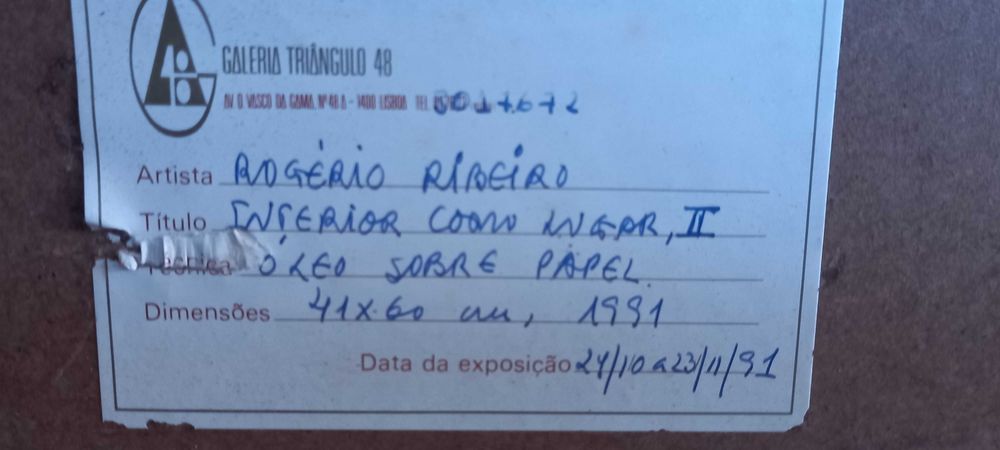 GALERIA TRIÂNGULO 48
AV D VASCO DA GAMA, Nº 48 A - 1400 LISBOA TEL
Artista ROGÉRIO RIBEIRO
Título INTERIOR COMO LUGAR, II
Técnica ÓLEO SOBRE PAPEL
Dimensões 41 x 60 cm, 1991
Data da exposição 24/10 a 23/11/91